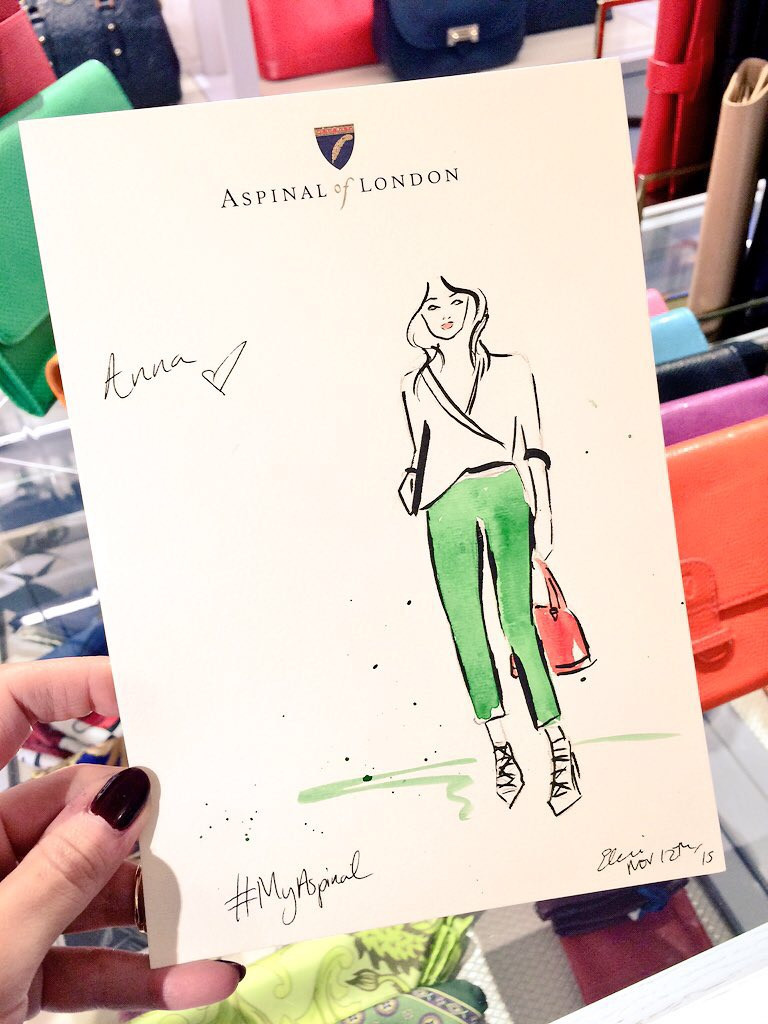 ASPINAL of LONDON
Anna
#MyAspinal
Eleni
NOV 12TH/15